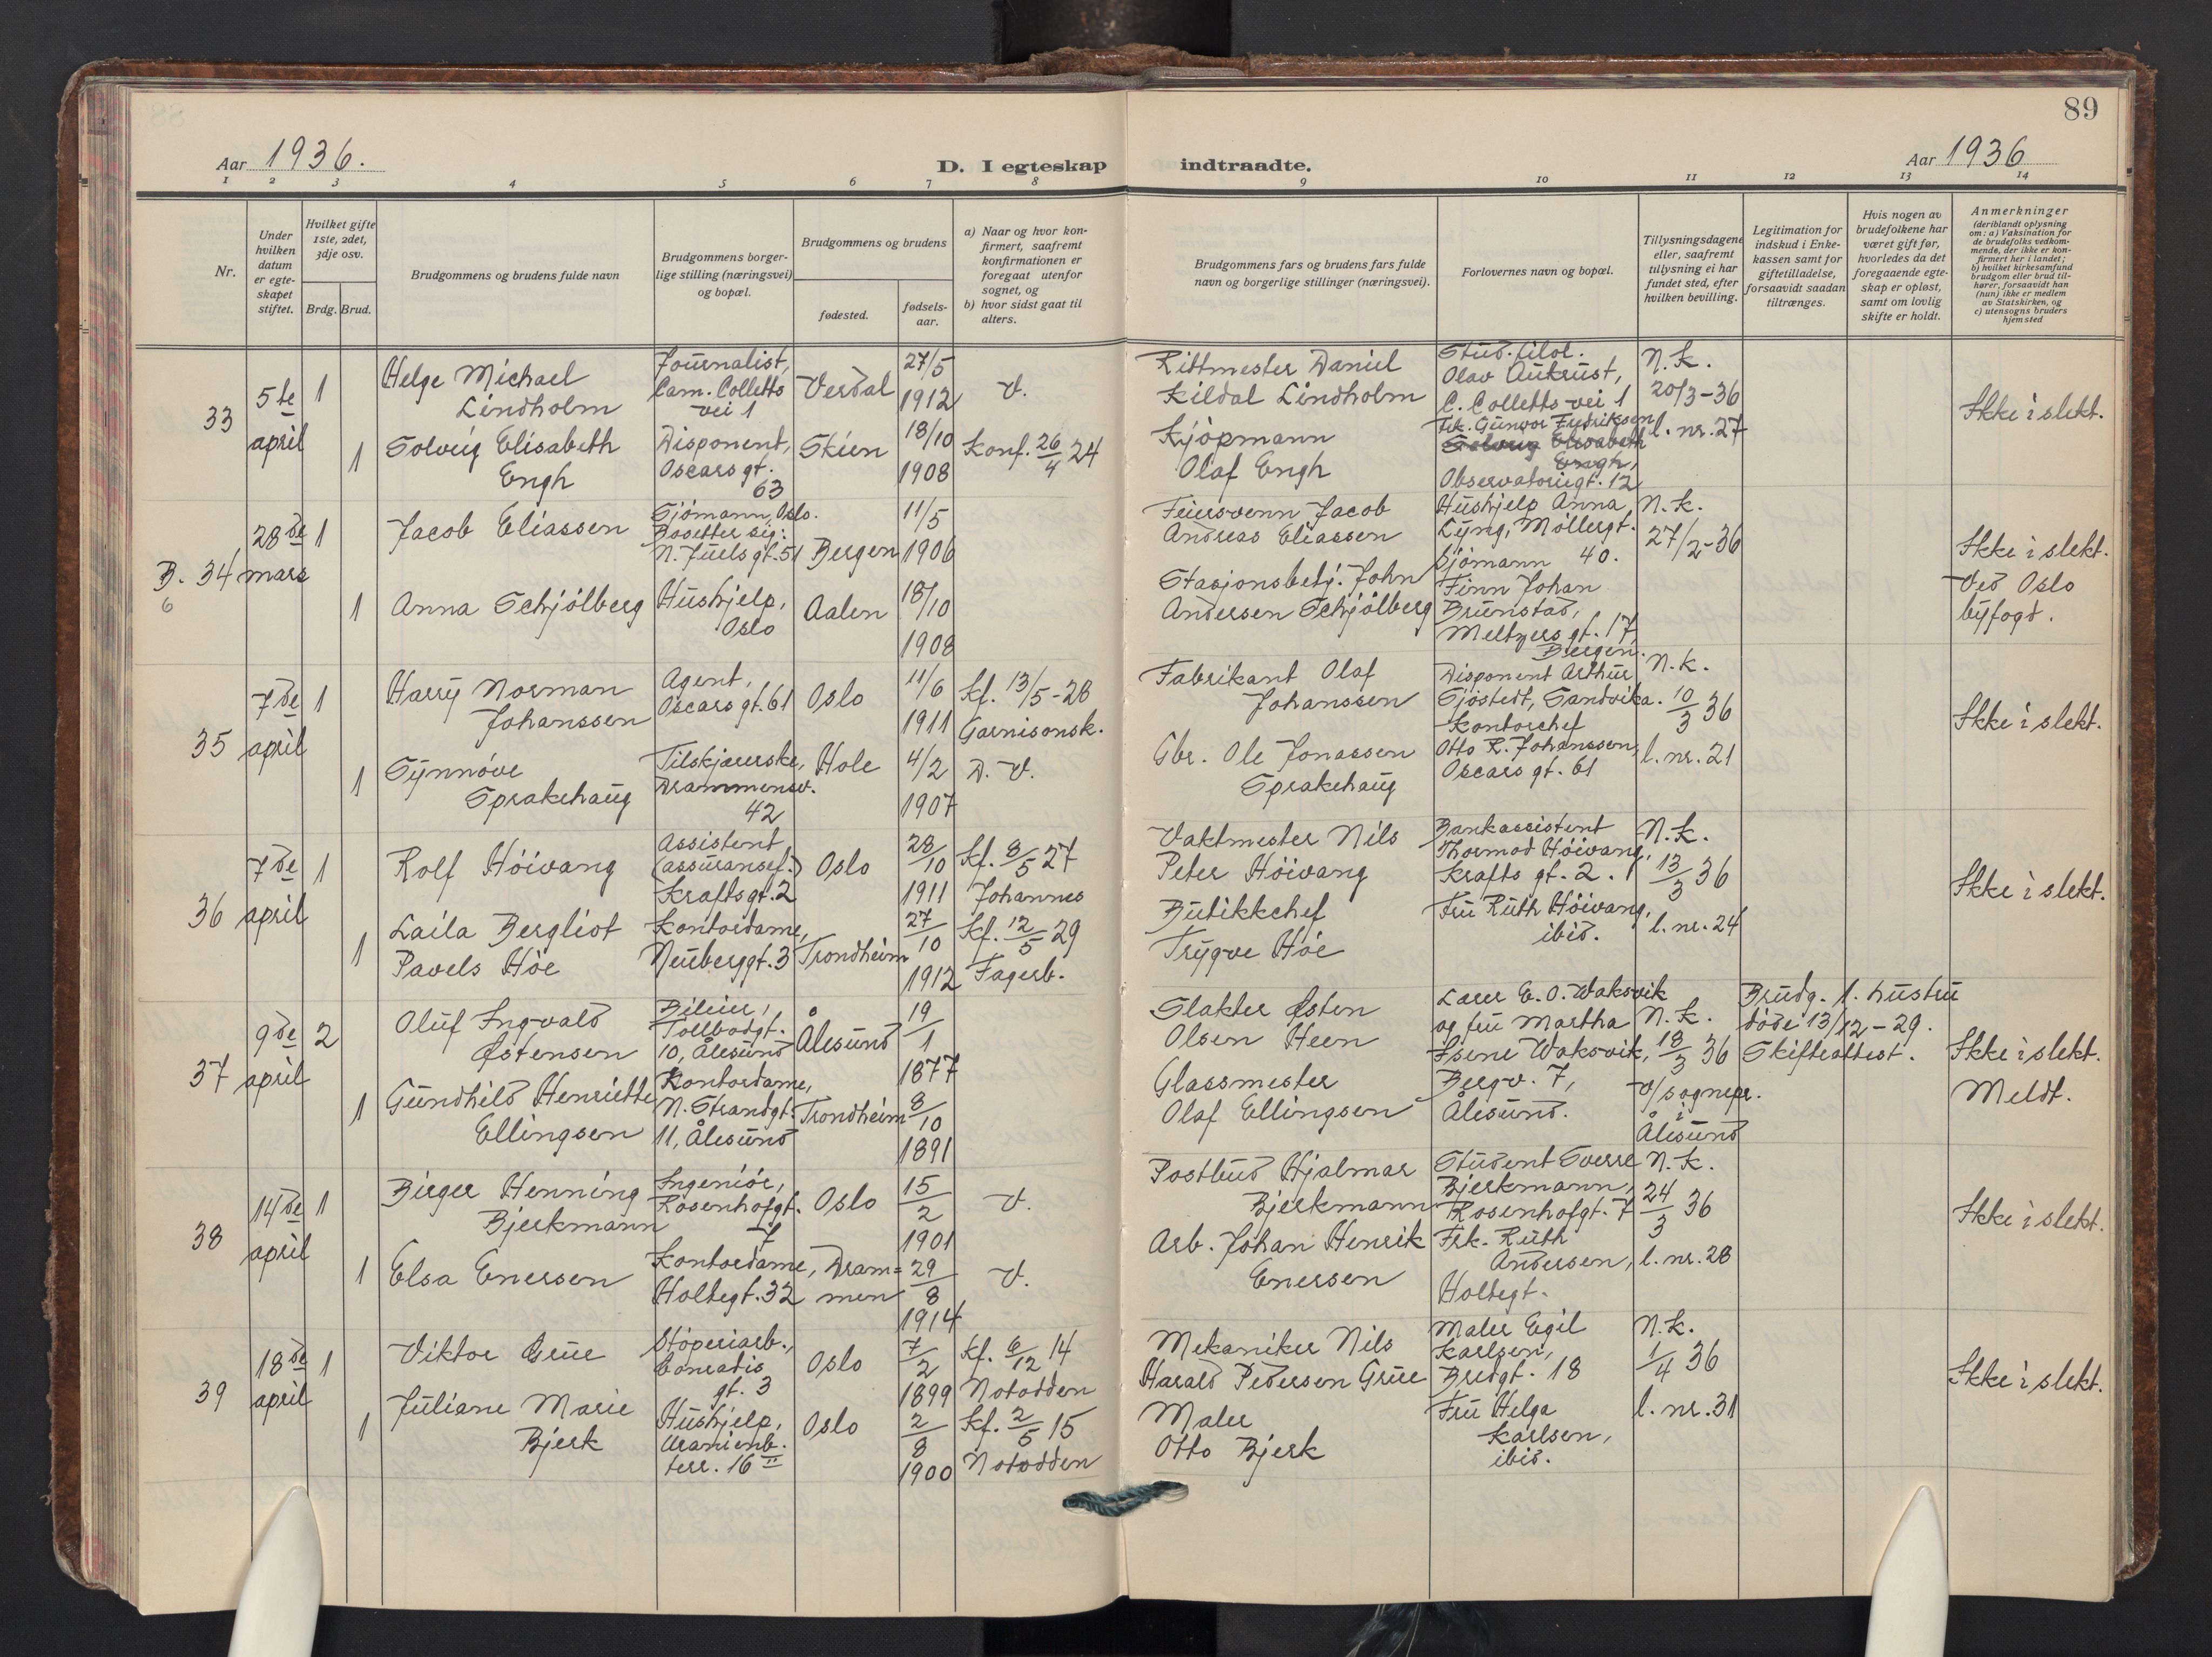 89
Aar 1936.
D. I egteskap indtraadte.
Aar 1936
1 2 3 4 5 6 7 8 9 10 11 12 13 14
Nr.
Under hvilken datum er egte-skapet stiftet.
Hvilket gifte 1ste, 2det, 3dje osv.
Brdg. Brud.
Brudgommens og brudens fulde navn
Brudgommens borger-lige stilling (næringsvei) og bopæl.
Brudgommens og brudens
fødested.
fødsels-aar.
a) Naar og hvor kon-firmert, saafremt konfirmationen er foregaat utenfor sognet, og
b) hvor sidst gaat til alters.
Brudgommens fars og brudens fars fulde navn og borgerlige stillinger (næringsvei).
Forlovernes navn og bopæl.
Tillysningsdagene eller, saafremt tillysning ei har fundet sted, efter hvilken bevilling.
Legitimation for indskud i Enke-kassen samt for giftetilladelse, forsaavidt saadan tiltrænges.
Hvis nogen av brudefolkene har været gift før, hvorledes da det foregaaende egte-skap er opløst, samt om lovlig skifte er holdt.
Anmerkninger
(deriblandt oplysning om: a) Vaksination for de brudefolks vedkom-mende, der ikke er kon-firmert her i landet; b) hvilket kirkesamfund brudgom eller brud til-hører, forsaavidt han (hun) ikke er medlem av Statskirken, og c) utensogns bruders hjemsted
33
5te april
1
Helge Michael
Lindholm
Journalist,
Cam. Colletts
vei 1
Verdal
27/5
1912
V.
Rittmester Daniel
Kildal Lindholm
Stud. filol.
Olav Aukrust,
C. Colletts vei 1
N.K.
20/3-36
l. nr. 27
Ikke i slekt.
1
Solveig Elisabeth
Engh
Disponent,
Oscars gt.
63
Skien
18/10
1908
Konf. 26/4 24
Kjöpmann
Olaf Engh
Frk. Gunvor Fredriksen
Solveig Elisabeth
Engh,
Observatoriegt. 12
B. 34
6
28de mars
1
Jacob Eliassen
Sjömann, Oslo.
Bosetter sig:
N. Juels gt. 51
Bergen
11/5
1906
Feiersvenn Jacob
Andreas Eliassen
Hushjelp Anna
Lyng, Möllergt.
40.
N.K.
27/2-36
Ikke i slekt.
Ved Oslo
byfogd.
1
Anna Schjölberg
Hushjelp,
Oslo
Aalen
18/10
1908
Stasjonsbetj. John
Andersen Schjölberg
Sjömann
Finn Johan
Brunstad,
Meltzers gt. 17,
Bergen.
35
7de april
1
Harry Norman
Johanssen
Agent,
Oscars gt. 61
Oslo
11/6
1911
Kf. 13/5-28
Garnisonsk.
Fabrikant Olaf
Johanssen
Disponent Arthur
Sjöstedt, Sandvika.
N.K.
10/3 36
l. nr. 21
Ikke i slekt.
1
Synnöve
Sprakehaug
Tilskjærerske,
Drammensv.
42
Hole
4/2
1907
D. V.
Gbr. Ole Jonassen
Sprakehaug
Kontorchef
Otto R. Johanssen,
Oscars gt. 61
36
7de april
1
Rolf Höivang
Assistent
(assuransef.)
Krafts gt. 2
Oslo
28/10
1911
Kf. 8/5 27
Johannes
Vaktmester Nils
Peter Höivang
Bankassistent
Thormod Höivang,
Krafts gt. 2.
N.K.
13/3 36
l. nr. 24
Ikke i slekt.
1
Laila Bergliot
Pavels Höe
Kontordame,
Neuberggt. 3
Trondheim
27/10
1912
Kf. 12/5 29
Fagerb.
Butikkchef
Trygve Höe
Fru Ruth Höivang,
ibid.
37
9de april
2
Oluf Ingvald
Østensen
Bileier,
Tollbodgt.
10, Ålesund
Ålesund
19/1
1877
Slakter Østen
Olsen Heen
Lærer E. O. Waksvik
og fru Martha
Isene Waksvik,
Bergv. 7,
Ålesund.
N.K.
18/3 36
v/sognepr.
i
Ålesund
Brudg. 1. hustru
döde 13/12-29.
Skifteattest.
Ikke i slekt.
Meldt.
1
Gundhild Henriette
Ellingsen
Kontordame,
N. Strandgt.
11, Ålesund
Trondheim
8/10
1891
Glassmester
Olaf Ellingsen
38
14de april
1
Birger Henning
Bjerkmann
Ingeniör,
Rosenhofgt.
7
Oslo
15/2
1901
V.
Postbud Hjalmar
Bjerkmann
Student Sverre
Bjerkmann,
Rosenhofgt. 7
N.K.
24/3 36
l. nr. 28
Ikke i slekt.
1
Elsa Enersen
Kontordame,
Holtegt. 32
Dram=
men
29/8
1914
V.
Arb. Johan Henrik
Enersen
Frk. Ruth
Andersen,
Holtegt.
39
18de april
1
Viktor Grue
Stöperiarb.,
Conradis
gt. 3
Oslo
7/2
1899
Kf. 6/12 14
Notodden
Mekaniker Nils
Harald Pedersen Grue
Maler Egil
Karlsen,
Bredgt. 18
N.K.
1/4 36
l. nr. 31
Ikke i slekt.
1
Juliane Marie
Bjerk
Hushjelp,
Uranienb.
terr. 16 II
Oslo
2/8
1900
Kf. 2/5 15
Notodden
Maler
Otto Bjerk
Fru Helga
Karlsen,
ibid.